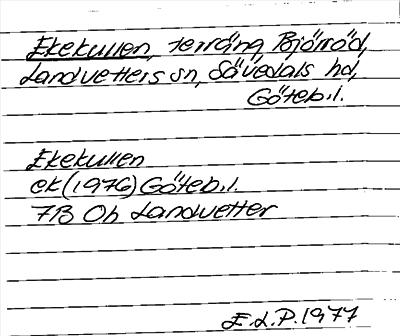 Ekekullen, terräng Björröd,
Landvetters sn, Sävedals hd,
Göteb.l.
Ekekullen
ek (1976) Göteb.l.
7B 0h Landvetter
E.L.P. 1977